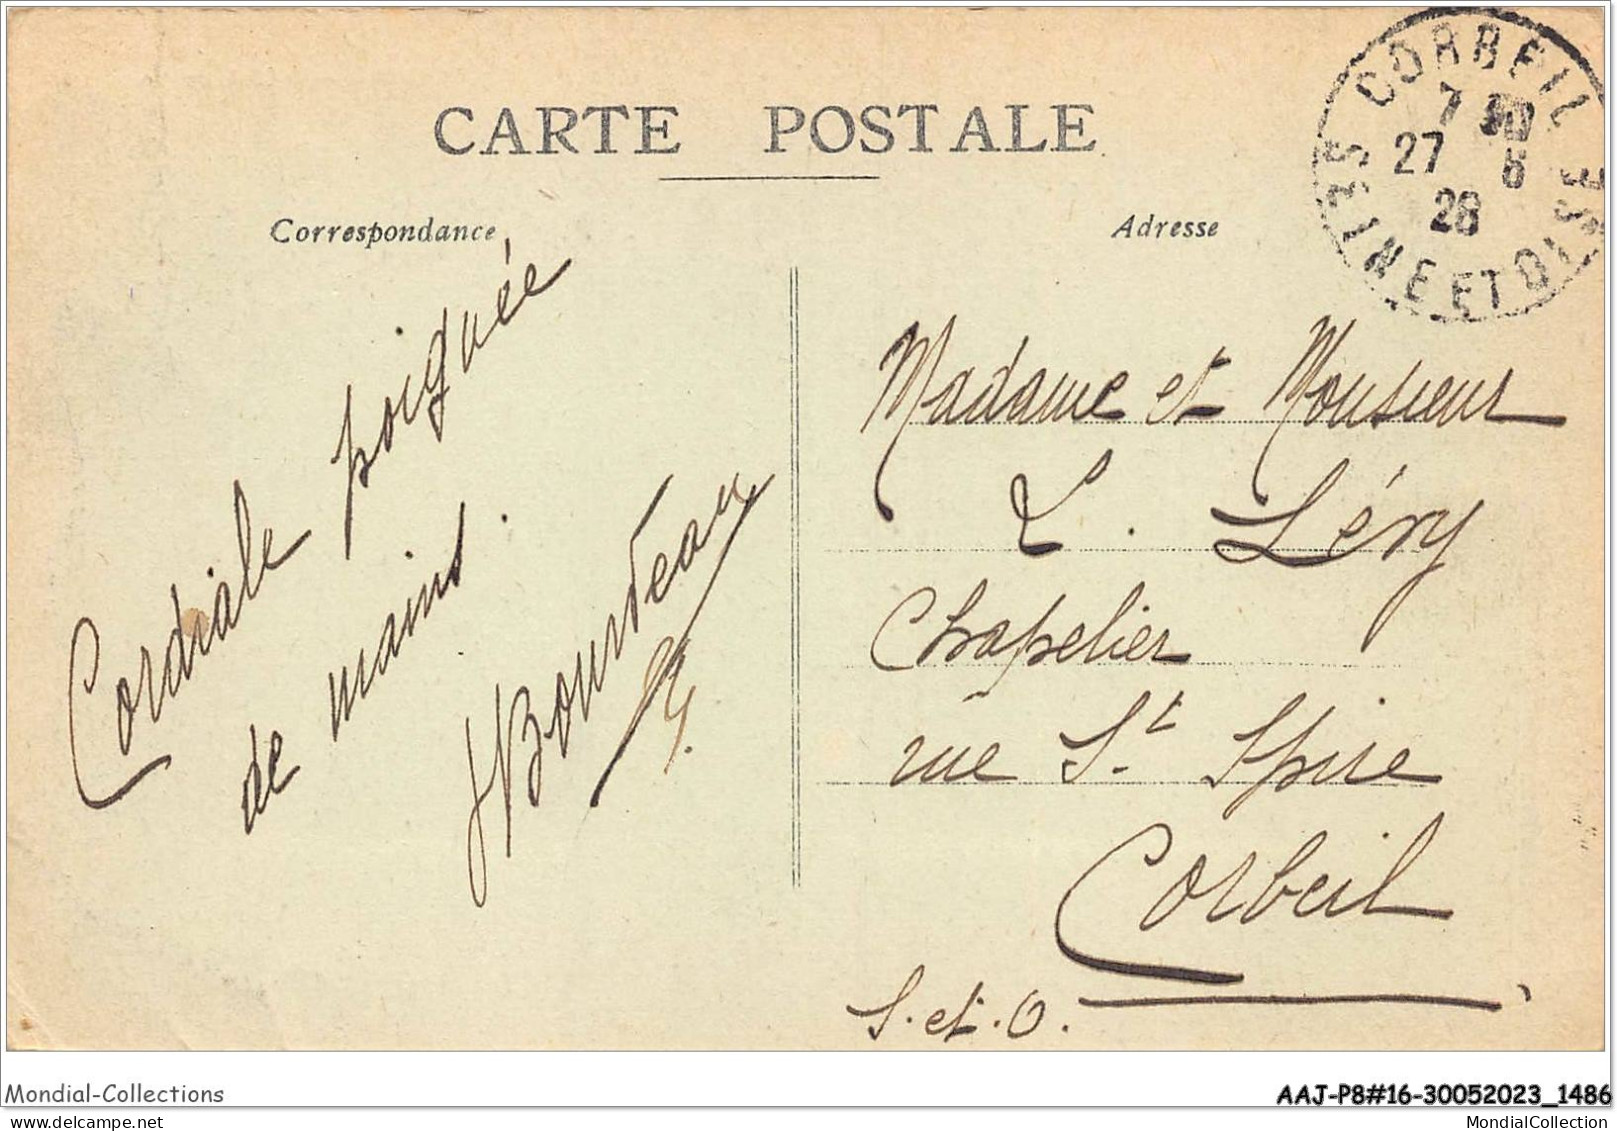 CARTE POSTALE
Correspondance
Adresse
CORBEIL
7
27 8
28
SEINE ET OISE
Cordiale poignée
de mains.
JBourdeau
Madame et Monsieur
L. Lévy
Chapelier
rue St Spire
Corbeil
S. et. O.
Mondial-Collections
AAJ-P8#16-30052023_1486
MondialCollection